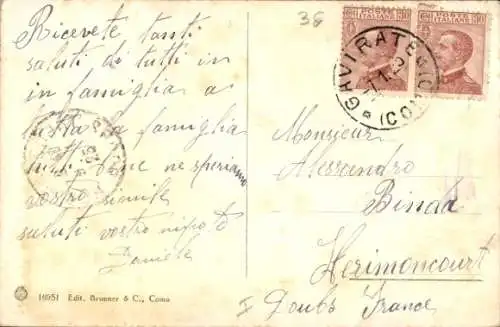 Ricevete tanti
saluti di tutti in
in famiglia a
tutta la famiglia
tutti bene ne speriamo
vostro simile
saluti vostro nipote
Daniele
16951 Edit. Brunner & C., Como
38
GAVIRATE
(COMO)
Monsieur
Alessandro
Binda
Herimoncourt
Doubs France